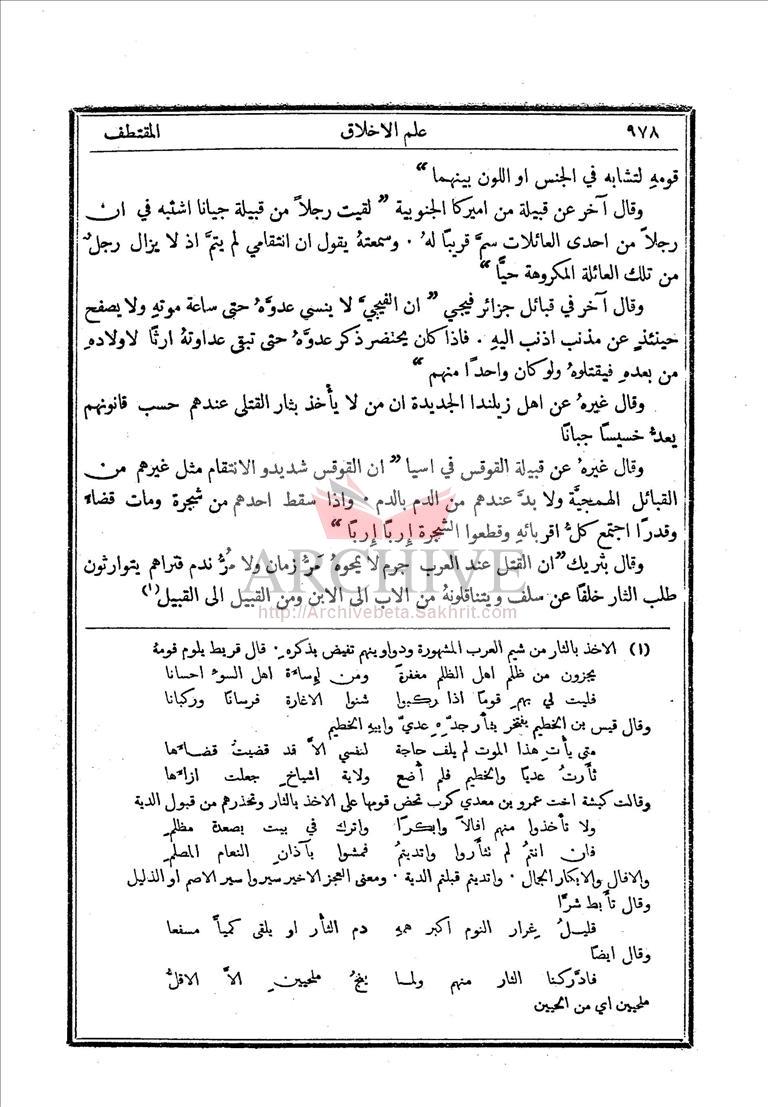 ٩٧٨ علم الاخلاق المقتطف
قومهِ لتشابه في الجنس او اللون بينهما “
وقال آخر عن قبيلة من اميركا الجنوبية ” لقيت رجلاً من قبيلة جيانا اشتبه في ان
رجلاً من احدى العائلات سمَّ قريبًا لهُ . وسمعتهُ يقول ان انتقامي لم يتمَّ اذ لا يزال رجلٌ
من تلك العائلة المكروهة حيًّا “
وقال آخر في قبائل جزائر فيجي ” ان الفيجيَّ لا ينسى عدوَّهُ حتى ساعة موتهِ ولا يصفح
حينئذٍ عن مذنب اذنب اليهِ . فاذا كان يحتضر ذكر عدوَّهُ حتى تبقى عداوتهُ ارثًا لاولادهِ
من بعدهِ فيقتلوهُ ولو كان واحدًا منهم “
وقال غيرهُ عن اهل زيلندا الجديدة ان من لا يأخذ بثار القتلى عندهم حسب قانونهم
يعدُّ خسيسًا جبانًا
وقال غيرهُ عن قبيلة القوقس في اسيا ” ان القوقس شديدو الانتقام مثل غيرهم من
القبائل الهمجيَّة ولا بدَّ عندهم من الدم بالدم . واذا سقط احدهم من شجرة ومات قضاءً
وقدرًا اجتمع كلُّ اقربائهِ وقطعوا الشجرة إربًا إربًا “
وقال بثريك ” ان القتل عند العرب جرم لا يمحوهُ مرُّ زمان ولا مرُّ ندم فتراهم يتوارثون
طلب الثار خلفًا عن سلف ويتناقلونهُ من الاب الى الابن ومن القبيل الى القبيل(١)
ARCHIVE
http://Archivebeta.Sakhrit.com
(١) الاخذ بالثار من شيم العرب المشهورة ودواوينهم تفيض بذكرهِ . قال قريط يلوم قومهُ
يجزون من ظلم اهل الظلم مغفرة ومن إساءة اهل السوء احسانا
فليت لي بهم قومًا اذا ركبوا شنوا الاغارة فرسانًا وركبانا
وقال قيس بن الخطيم يفتخر بثأر جدّهِ عديّ وابيهِ الخطيم
متى يأت هذا الموت لم يلف حاجة لنفسي الاَّ قد قضيتُ قضاءها
ثأرتُ عديًا والخطيم فلم أضع ولاية اشياخ جعلت ازاءها
وقالت كبشة اخت عمرو بن معدي كرب تحض قومها على الاخذ بالثار وتحذرهم من قبول الدية
ولا تأخذوا منهم افالاً وابكرًا واترك في بيت بصعدة مظلمِ
فان انتمُ لم تثأروا واتديتمُ فمشوا بآذان النعام المصلمِ
والافال والابكار الجمال . واتديتم قبلتم الدية . ومعنى العجز الاخير سيروا سير الاصم او الذليل
وقال تأَبط شرًّا
قليلُ غرار النوم اكبر همهِ دم الثأر او يلقى كميًّا مسفعا
وقال ايضًا
فادَّركنا الثار منهم ولما ينجُ ملحيين الاَّ الاقلُّ
ملحيين اي من الحيين